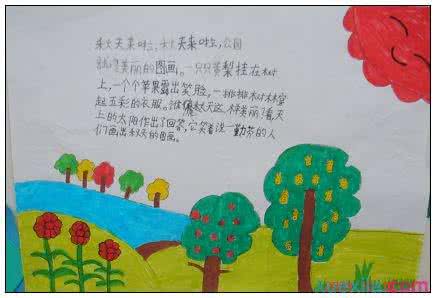 秋天来啦,秋天来啦,公园
就是美丽的图画。一只只黄梨挂在树
上,一个个苹果露出笑脸,一排排树林穿
起五彩的衣服。谁使秋天这样美丽?看天
上的太阳作出了回答,它笑着说勤劳的人
们画出秋天的图画。